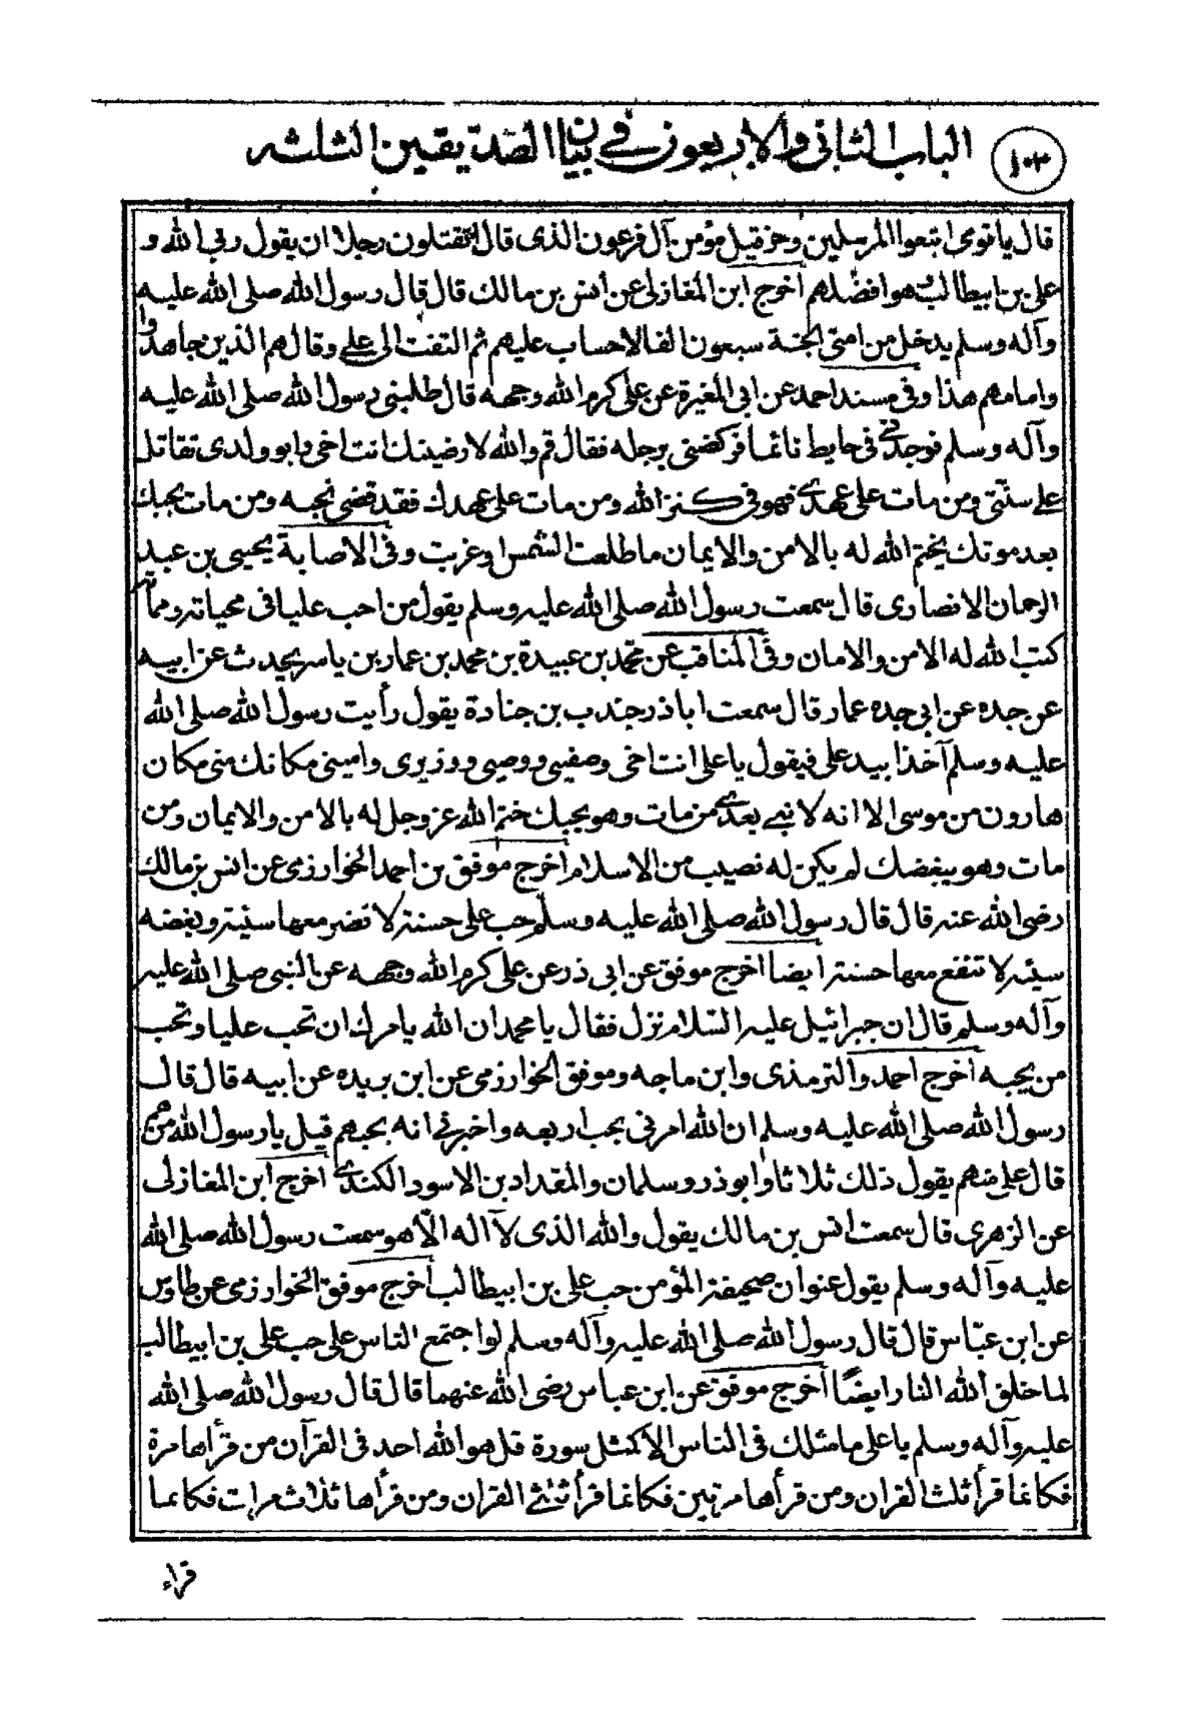 ١٠٣ الباب الثانى والاربعون فى بيان الصديقين الثلثه
قال يا قومى اتبعوا المرسلين وحزقيل مؤمن آل فرعون الذى قال اتقتلون رجلا ان يقول ربى الله و
على بن ابيطالب هو افضلهم أخرج ابن المغازلى عن أنس بن مالك قال قال رسول الله صلى الله عليه
وآله وسلم يدخل من امتى الجنة سبعون الفا لاحساب عليهم ثم التفت الى على وقال هم الذين جاهدوا
وامامهم هذا وفى مسند احمد عن ابى المغيرة عن على كرم الله وجهه قال طلبنى رسول الله صلى الله عليه
وآله وسلم فوجدنى فى حايط نائما فركضنى برجله فقال قم والله لارضينك انت اخى وابو ولدى تقاتل
على سنتى ومن مات على عهدى فهو فى كنز الله ومن مات على عهدك فقد قضى نحبه ومن مات يحبك
بعد موتك يختم الله له بالامن والايمان ما طلعت الشمس او غربت وفى الاصابة يحيى بن عبد
الرحمان الانصارى قال سمعت رسول الله صلى الله عليه وسلم يقول من احب عليا فى محياته ومماته
كتب الله له الامن والامان وفى المناقب عن محمد بن عبيدة بن محمد بن عمار بن ياسر يحدث عن ابيه
عن جده عن ابى جده عمار قال سمعت اباذر جندب بن جنادة يقول رأيت رسول الله صلى الله
عليه وسلم آخذا بيد على فيقول يا على انت اخى وصفيى ووصيى ووزيرى وامينى مكانك منى مكان
هارون من موسى الا انه لا نبى بعدى من مات وهو يحبك ختم الله عز وجل له بالامن والايمان ومن
مات وهو يبغضك لم يكن له نصيب من الاسلام أخرج موفق بن احمد الخوارزمى عن انس بن مالك
رضى الله عنه قال قال رسول الله صلى الله عليه وسلم حب على حسنة لا تضر معها سيئة وبغضه
سيئة لا تنفع معها حسنة ايضا أخرج موفق عن ابى ذر عن على كرم الله وجهه عن النبى صلى الله عليه
وآله وسلم قال إن جبرائيل عليه السلام نزل فقال يا محمد ان الله يامرك ان تحب عليا وتحب
من يحبه أخرج احمد والترمذى وابن ماجه وموفق الخوارزمى عن ابن بريده عن ابيه قال قال
رسول الله صلى الله عليه وسلم ان الله امرنى بحب اربعه واخبرنى انه يحبهم قيل يا رسول الله من هم
قال على منهم يقول ذلك ثلاثا وابو ذر وسلمان والمقداد بن الاسود الكندى أخرج ابن المغازلى
عن الزهرى قال سمعت انس بن مالك يقول والله الذى لا اله الا هو سمعت رسول الله صلى الله
عليه وآله وسلم يقول عنوان صحيفة المؤمن حب على بن ابيطالب أخرج موفق الخوارزمى عن طاوس
عن ابن عباس قال قال رسول الله صلى الله عليه وآله وسلم لو اجتمع الناس على حب على بن ابيطالب
لما خلق الله النار ايضا أخرج موفق عن ابن عباس رضى الله عنهما قال قال رسول الله صلى الله
عليه وآله وسلم يا على ما مثلك فى الناس الا كمثل سورة قل هو الله احد فى القرآن من قرأها مرة
فكانما قرأ ثلث القران ومن قرأها مرتين فكانما قرأ ثلثى القران ومن قرأها ثلاث مرات فكانما
قراء